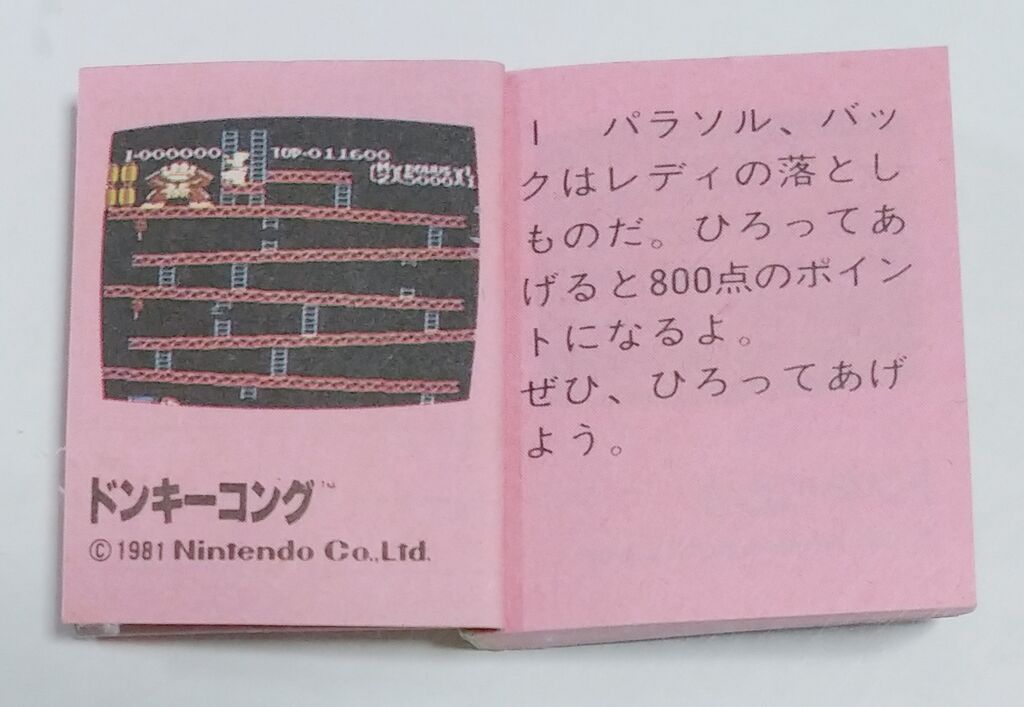 I-000000 TOP-011600
ドンキーコング™
©1981 Nintendo Co.,Ltd.
1 パラソル、バッ
クはレディの落とし
ものだ。ひろってあ
げると800点のポイン
トになるよ。
ぜひ、ひろってあげ
よう。